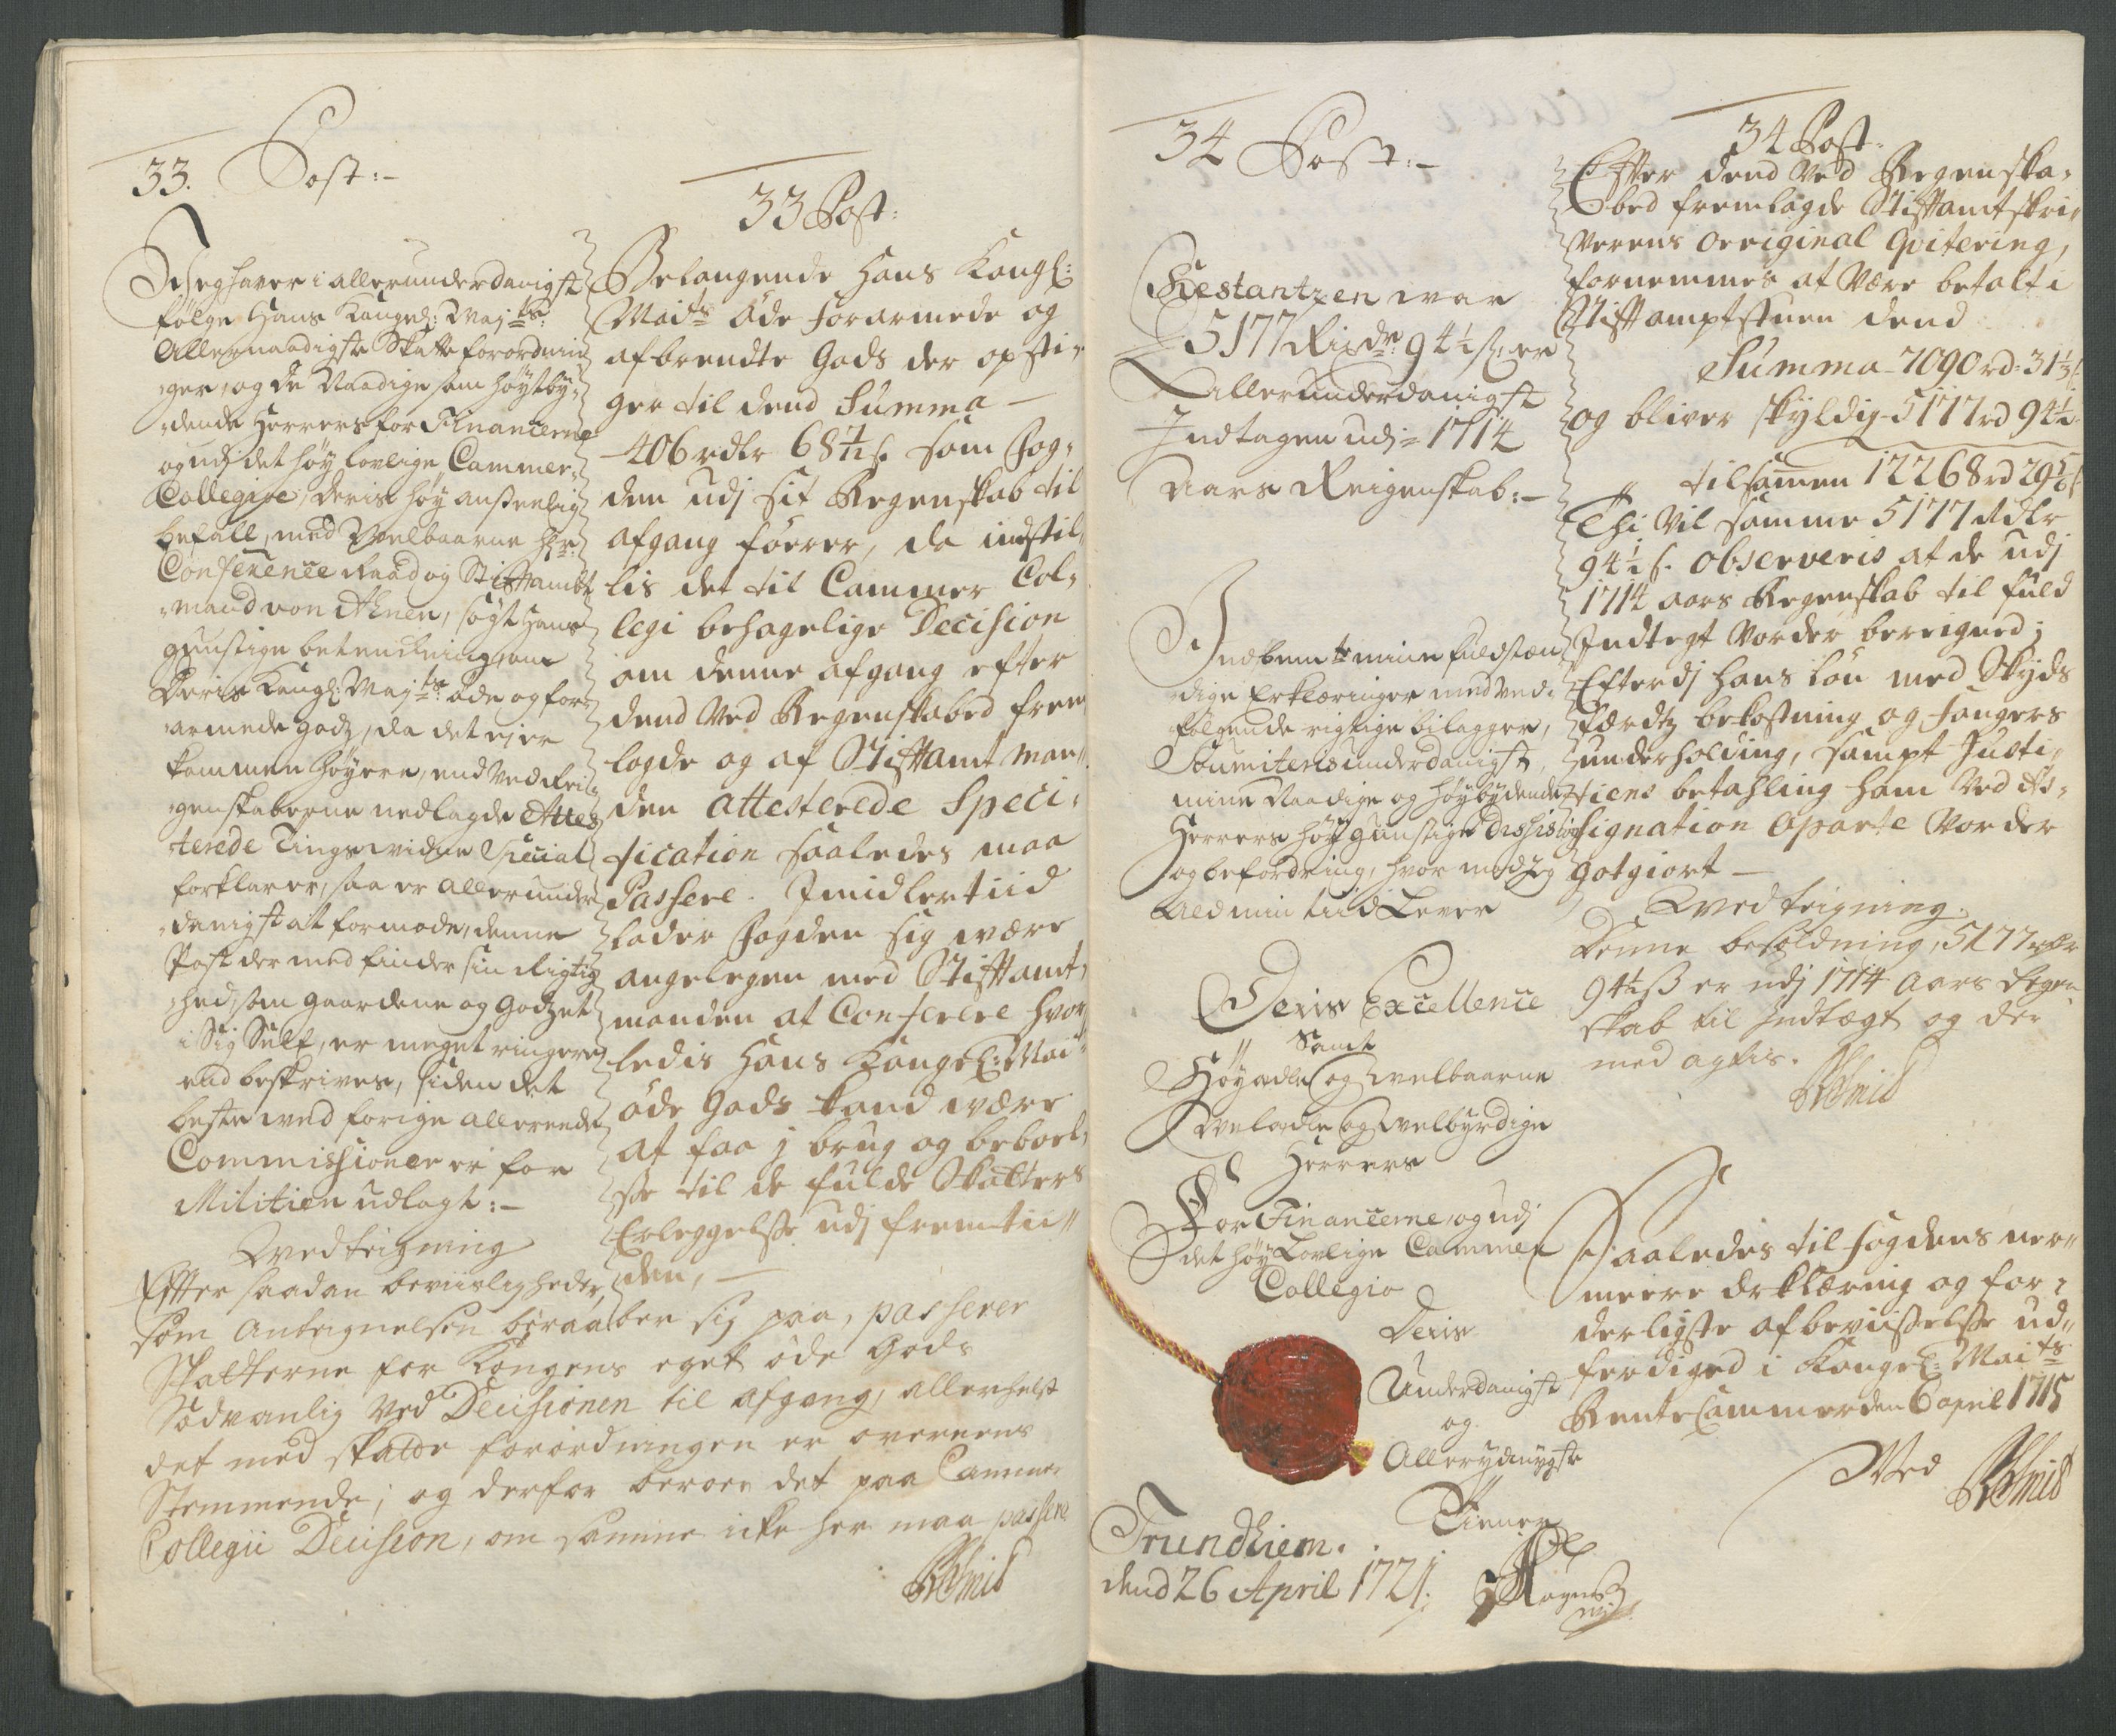 33. Post:-
Jeg haver i allerunderdanigst
følge Hans Kongel: Maj:ts
Allernaadigste Skatte forordnin
ger, og de Naadige som høytby,
dende Herrers for Financerne
og udj det høy lovlige Cammer
Collegie, deris høy anseenlig
befall, med Velbaarne hr:
Conference Raad og Stiftambt
mand von Ahnen, søgt hans
gunstige betenkning, om
Deris Kongl: Maj:ts øde og for
armede godz, da det ej er
kommen høyere, end ved Rei
genskaberne nedlagde Attes
terede Tingsvidne Special
forklarer, saa er allerunder
danigst at formode, denne
Post der med finder sin Rigtig
hed, som gaardene og Godzet
i Sig Self, er meget ringere
end beskrives, siden det
beste ved forige allerende
Commissioner er for
Militien udlagt:-
Ved teigning
Efter saadan beviisligheder,
som Antegnelsen beraaber sig paa, passerer
Skatterne for Kongens eget øde Gods
Sødvanlig ved Decisionen til afgang, allerhelst
det med skatte forordningen er overeens
Stemmende; og derfor beroer det paa Cammer
Collegii Decision, om samme icke her maa passere
33 Post:
Belangende Hans Kongl:
Maits øde forarmede og
afbrendte Gods der opsti,
ger til dend Summa —
406 rdlr 68½ s. som Fog,
den udj sit Regenskab til
afgang förer, da indstil,
lis det til Cammer Col,
legi behagelige Decision
om denne afgang efter
dend ved Regenskabed frem
lagde og af Stiftamtman
den attesterede Speci,
fication saaledes maa
Passere. Imidlertiid
lader Fogden sig være
angelegen med Stiftamt,
manden at Conferere hvor
ledis Hans Kongel: Mai
øde Gods kand være
at faa j brug og beboel,
se til de fulde Skatters
Erleggelse udj fremtii
den, —
34 Post:-
Restantzen var
5177 Rixdr: 94½ s: er
allerunderdanigst
Indtagen udj = 1714
Aars Reigenskab:-
Indbemte mine fuldstæn
dige Erklæringer med ved
følgende rigtige bilagger,
Soumiteris underdanigst,
mine Naadige og høybydende
Herrers høy gunstige dessision
og befordring, hvor med Jeg
Ald min tiid Lever
Deris Excellence
Samt
Høyædle og Velbaarne
Velædle og Velbyrdige
Herrers
For Financerne, og udj
det høy Lovlige Cammer
Collegio
Deris
Underdanigst
og
Allerydmygste
Tiener
Trundhiem.
dend 26 April 1721:
34 Post.
Efter dend ved Regenska,
bed fremlagde Stiftamtskri,
verens original Qvitering,
fornemmes at være betalt i
Stiftamptstuen dend
Summa 7090 rd: 31⅓ s
og bliver skyldig 5177 rd 94½
tilsamen 12268 rd 29⅚ s
Thi vil samme 5177 Rdlr
94½ s. observeris at de udj
1714 aars Regenskab til fuld
Indtegt vorder bereigned;
Efterdj hans løn med Skyds
færdtz bekostning og fangers
underholding, sampt Justi,
tiens betahling ham ved As,
signation aparte vorder
gotgiort —
Ved teigning.
Denne besoldning, 5177 rdr
94½ s er udj 1714 Aars Regen
skab til Indtægt og der
med agtis.
Saaledes til fogdens ner
meere Erklæring og for,
derligste afbeviiselse ud,
ferdiged i Kongel: Maits
Rente Cammer den 6 april 1715
Ved